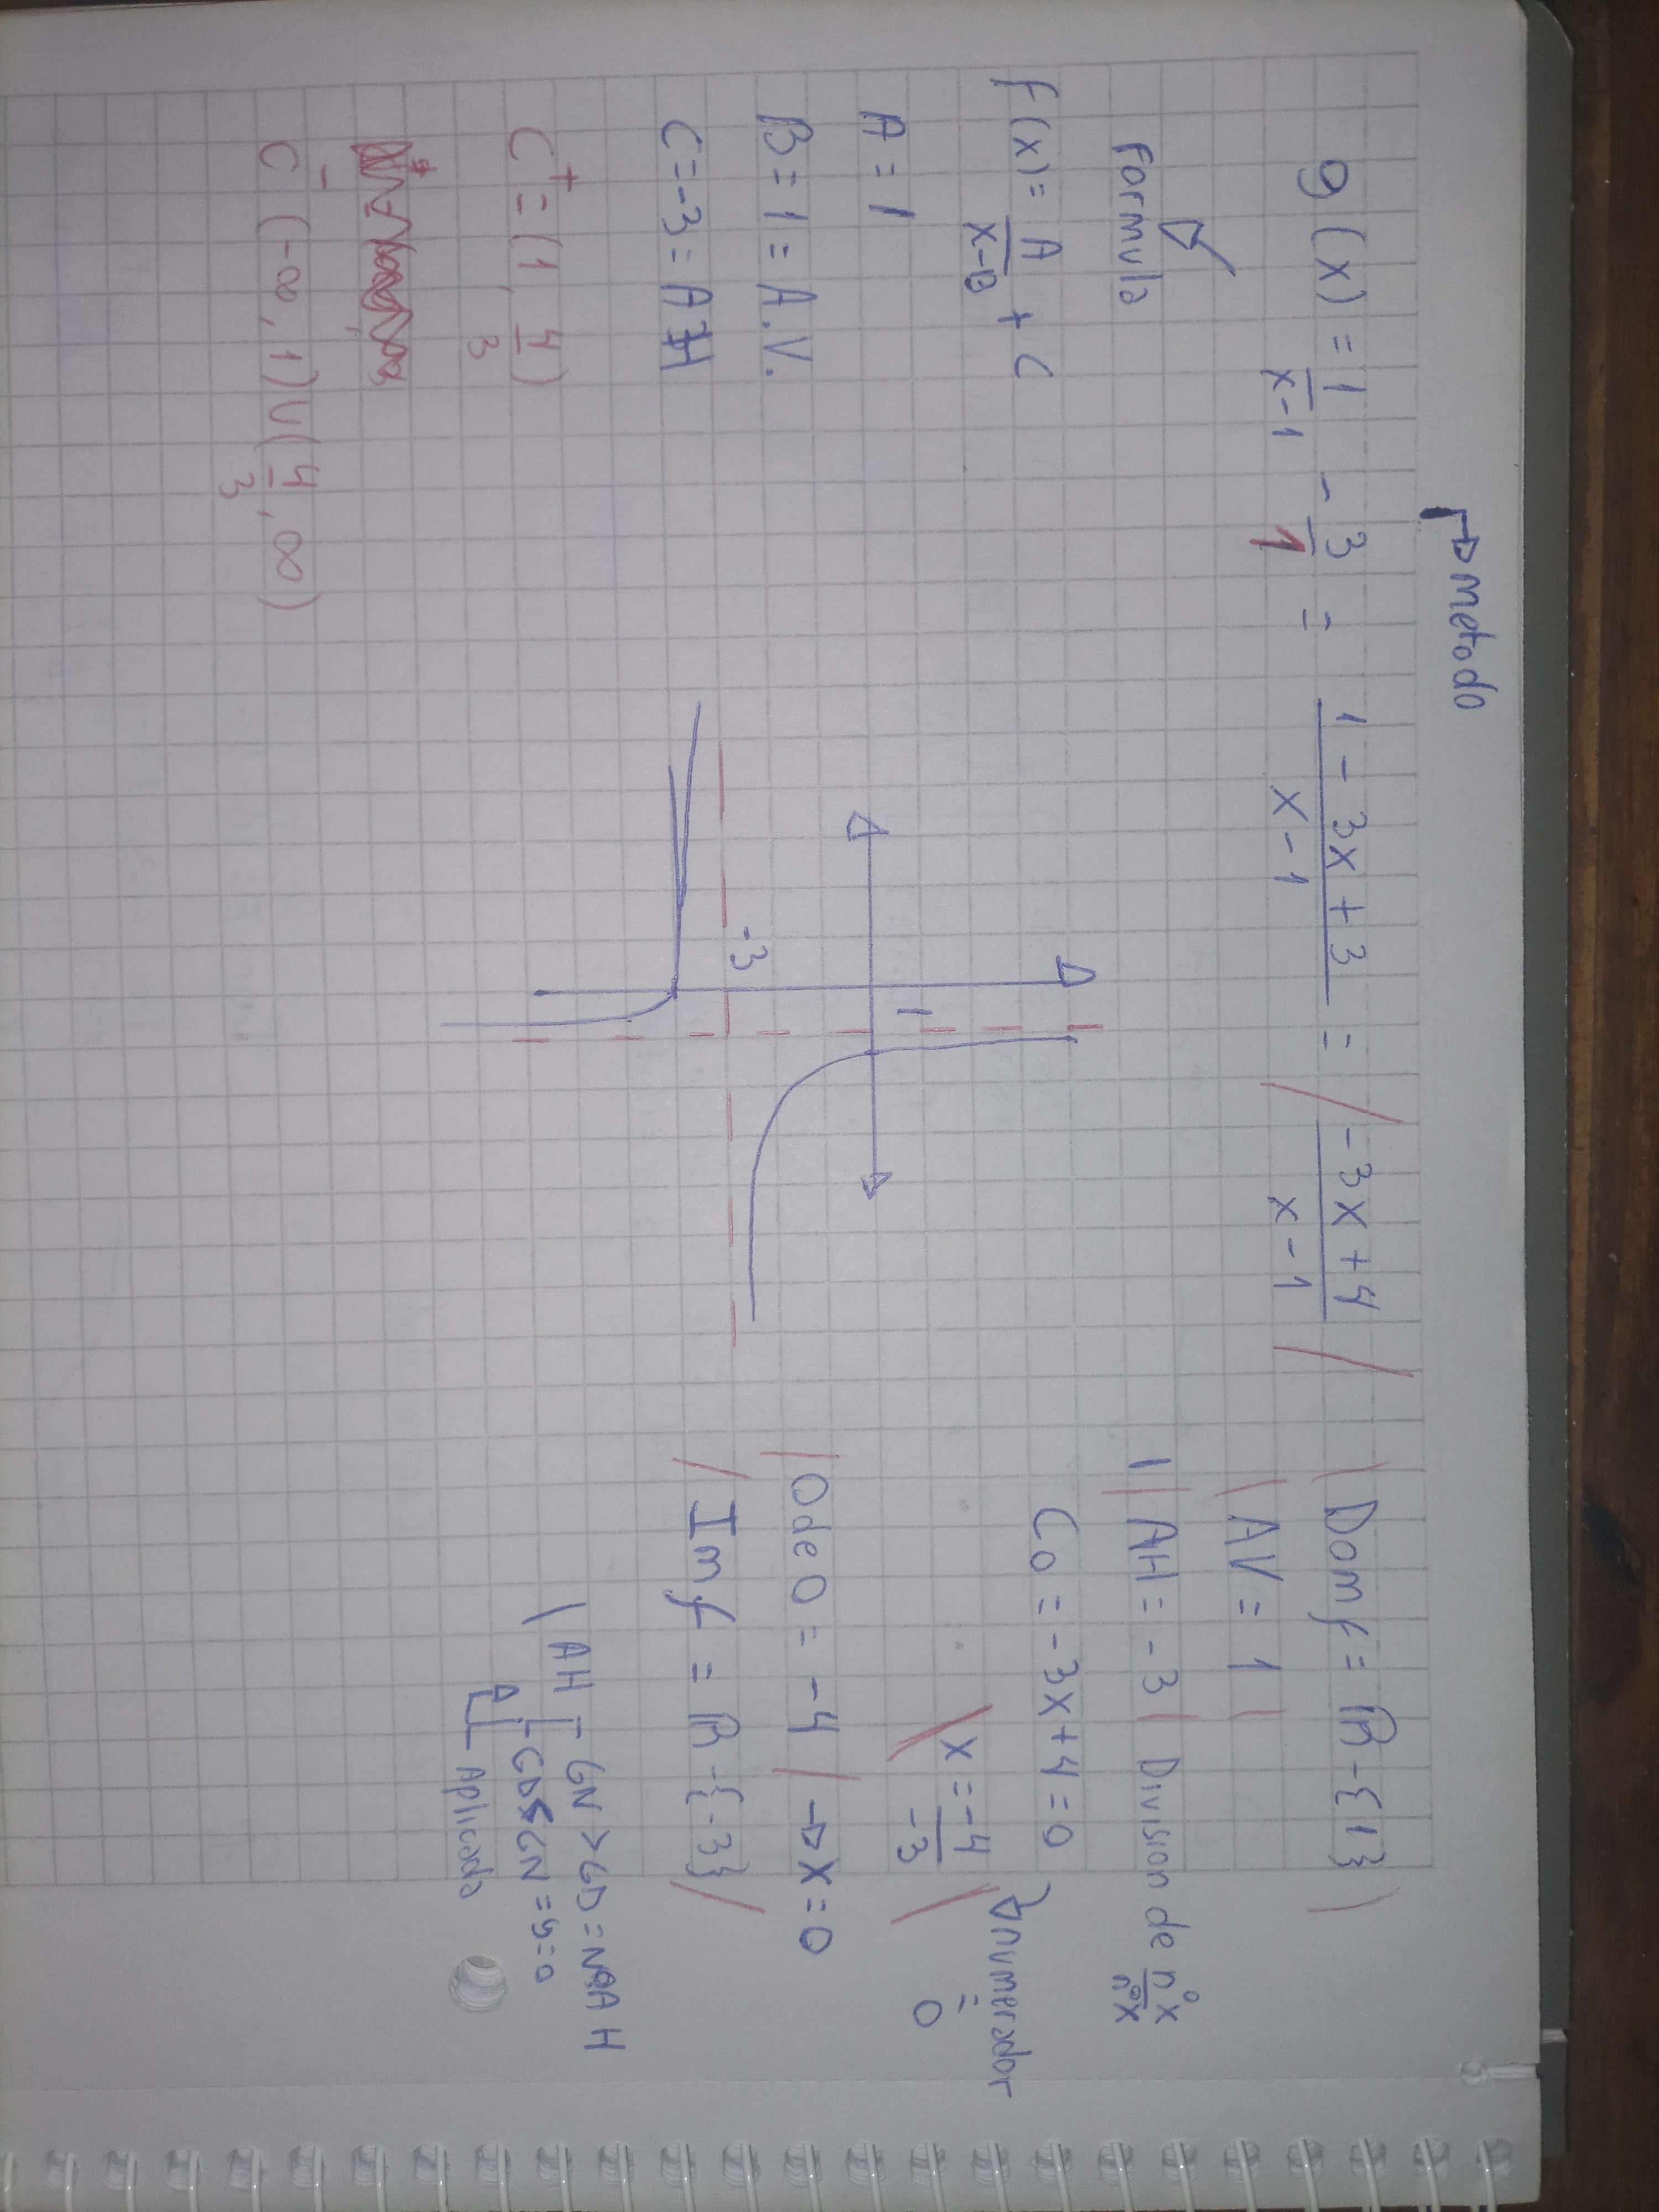 metodo
g(x) = 1/(x-1) - 3/1 = (1 - 3x + 3)/(x - 1) = (-3x + 4)/(x - 1)
Formula
f(x) = A/(x-B) + C
A = 1
B = 1 = A.V.
C = -3 = AH
C⁺ = (1, 4/3)
C⁻ (-∞, 1) U (4/3, ∞)
1
-3
Dom f = R - {1}
AV = 1
AH = -3 Division de n°x/n°x
C0 = -3x + 4 = 0
numerador
=
0
x = -4/-3
O de O = -4 → x = 0
Im f = R - {-3}
AH - GN > GD = No AH
- GD < GN = y = 0
Aplicada